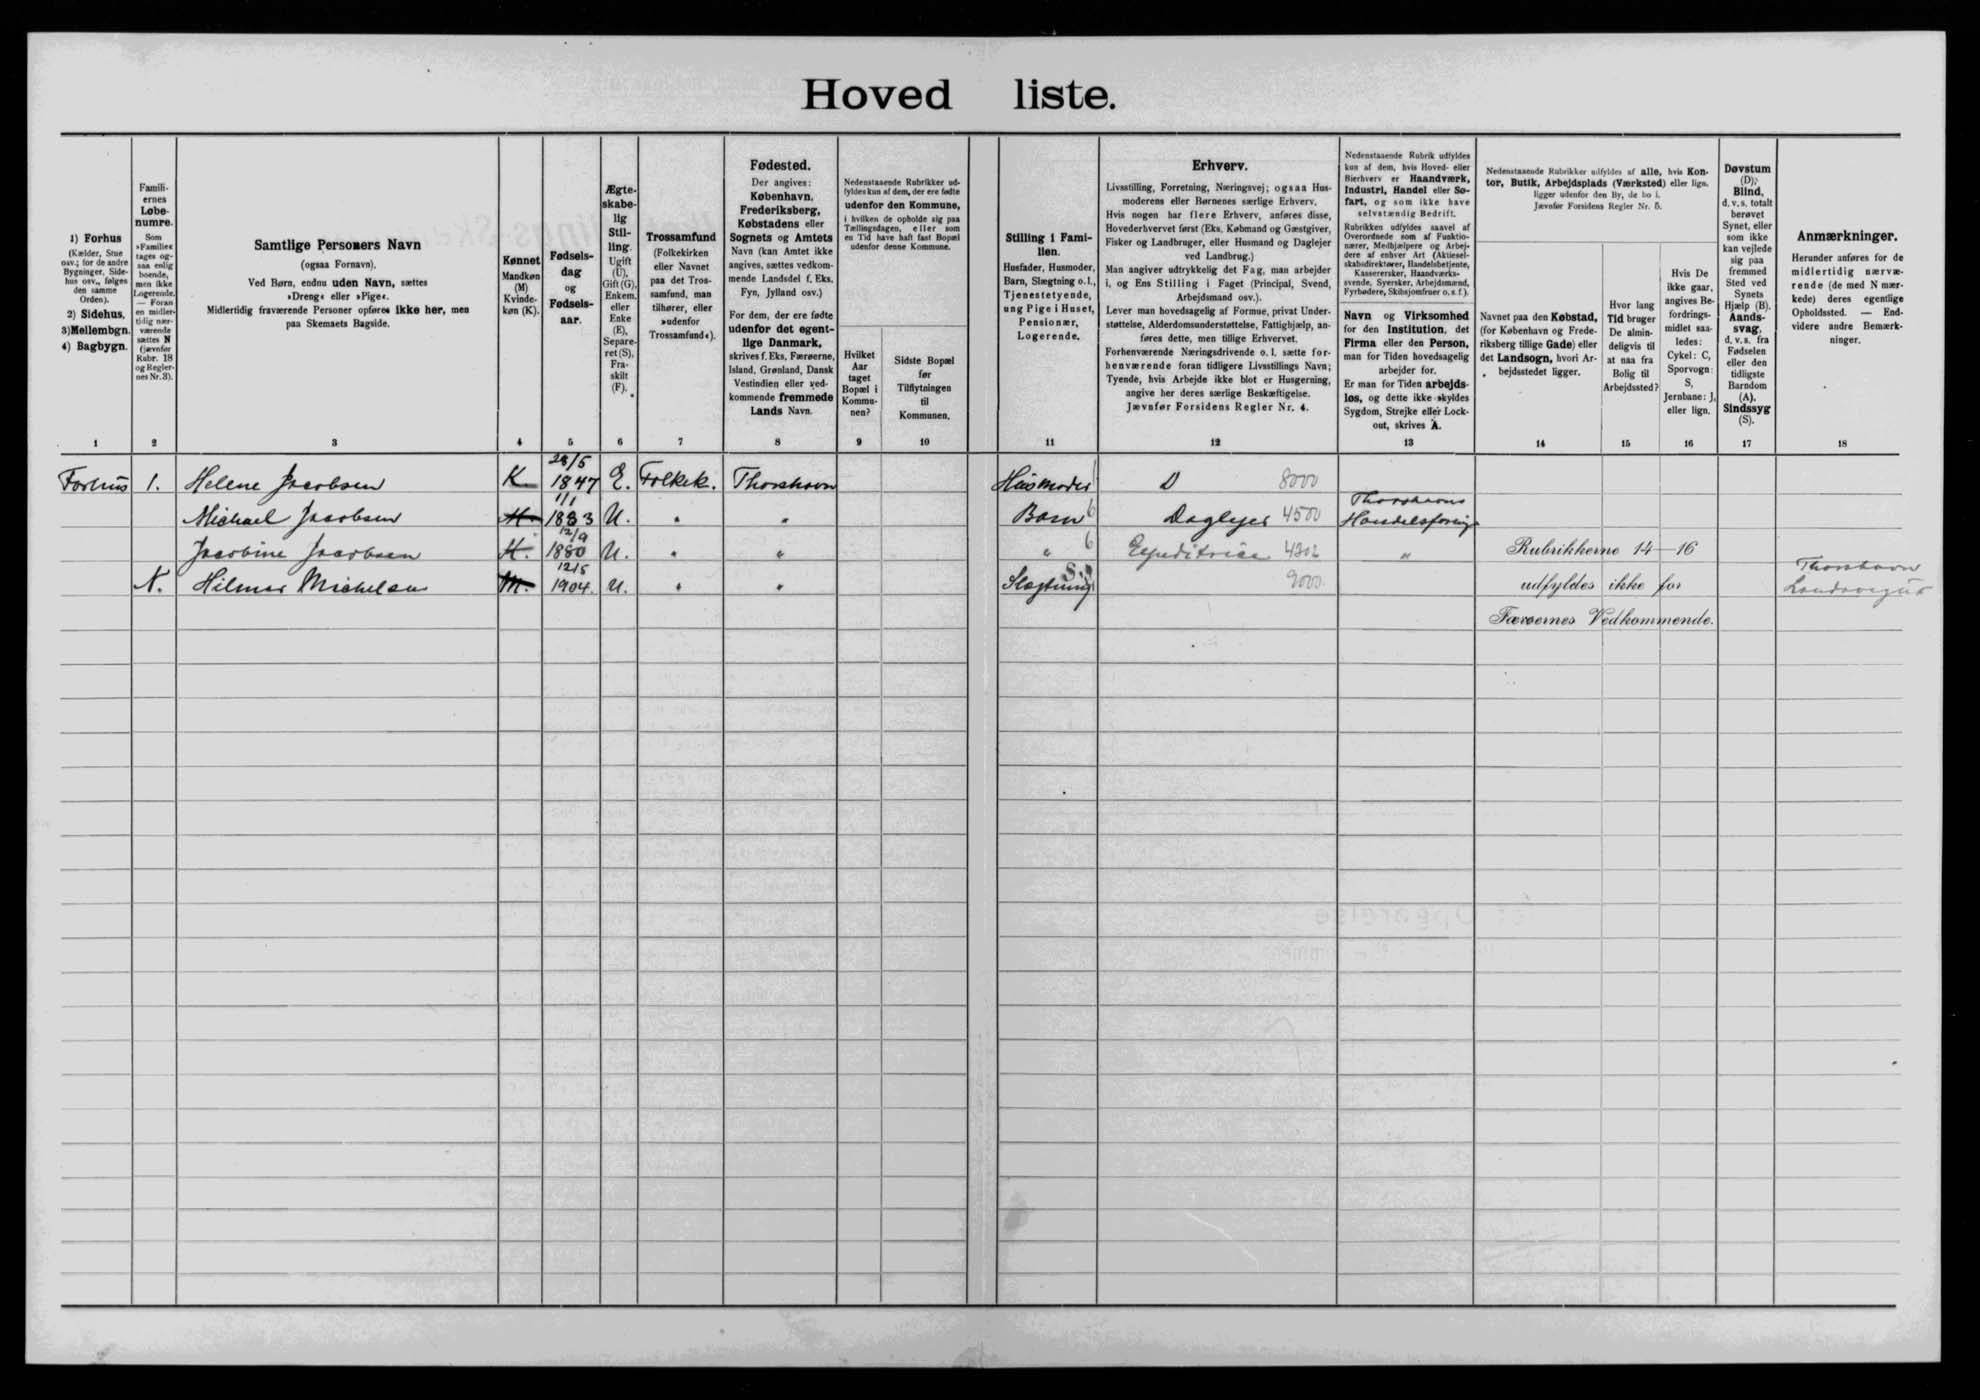 Hoved liste.
1) Forhus
(Kælder, Stue
osv.; for de andre
Bygninger, Side-
hus osv., følges
den samme
Orden).
2) Sidehus,
3) Mellembgn.
4) Bagbygn.
Famili-
ernes
Løbe-
numre.
Som
»Familie«
tages og-
saa enlig
boende,
men ikke
Logerende.
— Foran
en midler-
tidig nær-
værende
sættes N
(jævnfør
Rubr. 18
og Regler-
nes Nr. 3).
Samtlige Personers Navn
(ogsaa Fornavn).
Ved Børn, endnu uden Navn, sættes
»Dreng« eller »Pige«.
Midlertidig fraværende Personer opføres ikke her, men
paa Skemaets Bagside.
Kønnet
Mandkøn
(M)
Kvinde-
køn (K).
Fødsels-
dag
og
Fødsels-
aar.
Ægte-
skabe-
lig
Stil-
ling.
Ugift
(U),
Gift (G),
Enkem.
eller
Enke
(E),
Separe-
ret (S),
Fra-
skilt
(F).
Trossamfund
(Folkekirken
eller Navnet
paa det Tros-
samfund, man
tilhører, eller
»udenfor
Trossamfund«).
Fødested.
Der angives:
København,
Frederiksberg,
Købstadens eller
Sognets og Amtets
Navn (kan Amtet ikke
angives, sættes vedkom-
mende Landsdel f. Eks.
Fyn, Jylland osv.)
For dem, der ere fødte
udenfor det egent-
lige Danmark,
skrives f. Eks. Færøerne,
Island, Grønland, Dansk
Vestindien eller ved-
kommende fremmede
Lands Navn.
Nedenstaaende Rubrikker ud-
fyldes kun af dem, der ere fødte
udenfor den Kommune,
i hvilken de opholde sig paa
Tællingsdagen, eller som
en Tid have haft fast Bopæl
udenfor denne Kommune.
Hvilket
Aar
taget
Bopæl i
Kommu-
nen?
Sidste Bopæl
før
Tilflytningen
til
Kommunen.
Stilling i Fami-
lien.
Husfader, Husmoder,
Barn, Slægtning o. l.,
Tjenestetyende,
ung Pige i Huset,
Pensionær,
Logerende.
Erhverv.
Livsstilling, Forretning, Næringsvej; ogsaa Hus-
moderens eller Børnenes særlige Erhverv.
Hvis nogen har flere Erhverv, anføres disse,
Hovederhvervet først (Eks. Købmand og Gæstgiver,
Fisker og Landbruger, eller Husmand og Daglejer
ved Landbrug.)
Man angiver udtrykkelig det Fag, man arbejder
i, og Ens Stilling i Faget (Principal, Svend,
Arbejdsmand osv.).
Lever man hovedsagelig af Formue, privat Under-
støttelse, Alderdomsunderstøttelse, Fattighjælp, an-
føres dette, men tillige Erhvervet.
Forhenværende Næringsdrivende o. l. sætte for-
henværende foran tidligere Livsstillings Navn;
Tyende, hvis Arbejde ikke blot er Husgerning,
angive her deres særlige Beskæftigelse.
Jævnfør Forsidens Regler Nr. 4.
Nedenstaaende Rubrik udfyldes
kun af dem, hvis Hoved- eller
Bierhverv er Haandværk,
Industri, Handel eller Sø-
fart, og som ikke have
selvstændig Bedrift.
Rubrikken udfyldes saavel af
Overordnede som af Funktio-
nærer, Medhjælpere og Arbej-
dere af enhver Art (Aktiesel-
skabsdirektører, Handelsbetjente,
Kasserersker, Haandværks-
svende, Syersker, Arbejdsmænd,
Fyrbødere, Skibsjomfruer o. s. f.).
Navn og Virksomhed
for den Institution, det
Firma eller den Person,
man for Tiden hovedsagelig
arbejder for.
Er man for Tiden arbejds-
løs, og dette ikke skyldes
Sygdom, Strejke eller Lock-
out, skrives A.
Nedenstaaende Rubrikker udfyldes af alle, hvis Kon-
tor, Butik, Arbejdsplads (Værksted) eller lign.
ligger udenfor den By, de bo i.
Jævnfør Forsidens Regler Nr. 5.
Navnet paa den Købstad,
(for København og Frede-
riksberg tillige Gade) eller
det Landsogn, hvori Ar-
bejdsstedet ligger.
Hvor lang
Tid bruger
De almin-
deligvis til
at naa fra
Bolig til
Arbejdssted?
Hvis De
ikke gaar,
angives Be-
fordrings-
midlet saa-
ledes:
Cykel: C,
Sporvogn:
S,
Jernbane: J,
eller lign.
Døvstum
(D);
Blind,
d. v. s. totalt
berøvet
Synet, eller
som ikke
kan vejlede
sig paa
fremmed
Sted ved
Synets
Hjælp (B).
Aands-
svag,
d. v. s. fra
Fødselen
eller den
tidligste
Barndom
(A).
Sindssyg
(S).
Anmærkninger.
Herunder anføres for de
midlertidig nærvæ-
rende (de med N mær-
kede) deres egentlige
Opholdssted. — End-
videre andre Bemærk-
ninger.
1 2 3 4 5 6 7 8 9 10 11 12 13 14 15 16 17 18
Forhus 1. Helene Jacobsen K 28/5 1847 E. Folkek. Thorshavn Husmoder D 8000
Michael Jacobsen M 1/1 1883 U. " " Barn 6 Daglejer 4500 Thorshavns Handelsforening
Jacobine Jacobsen K. 12/9 1880 U. " " " 6 Expeditrice "
N. Hilmar Michelsen M. 12/5 1904. U. " " Slægtning 9000 Thorshavn
Rubrikkerne 14—16
udfyldes ikke for
Færøernes Vedkommende.